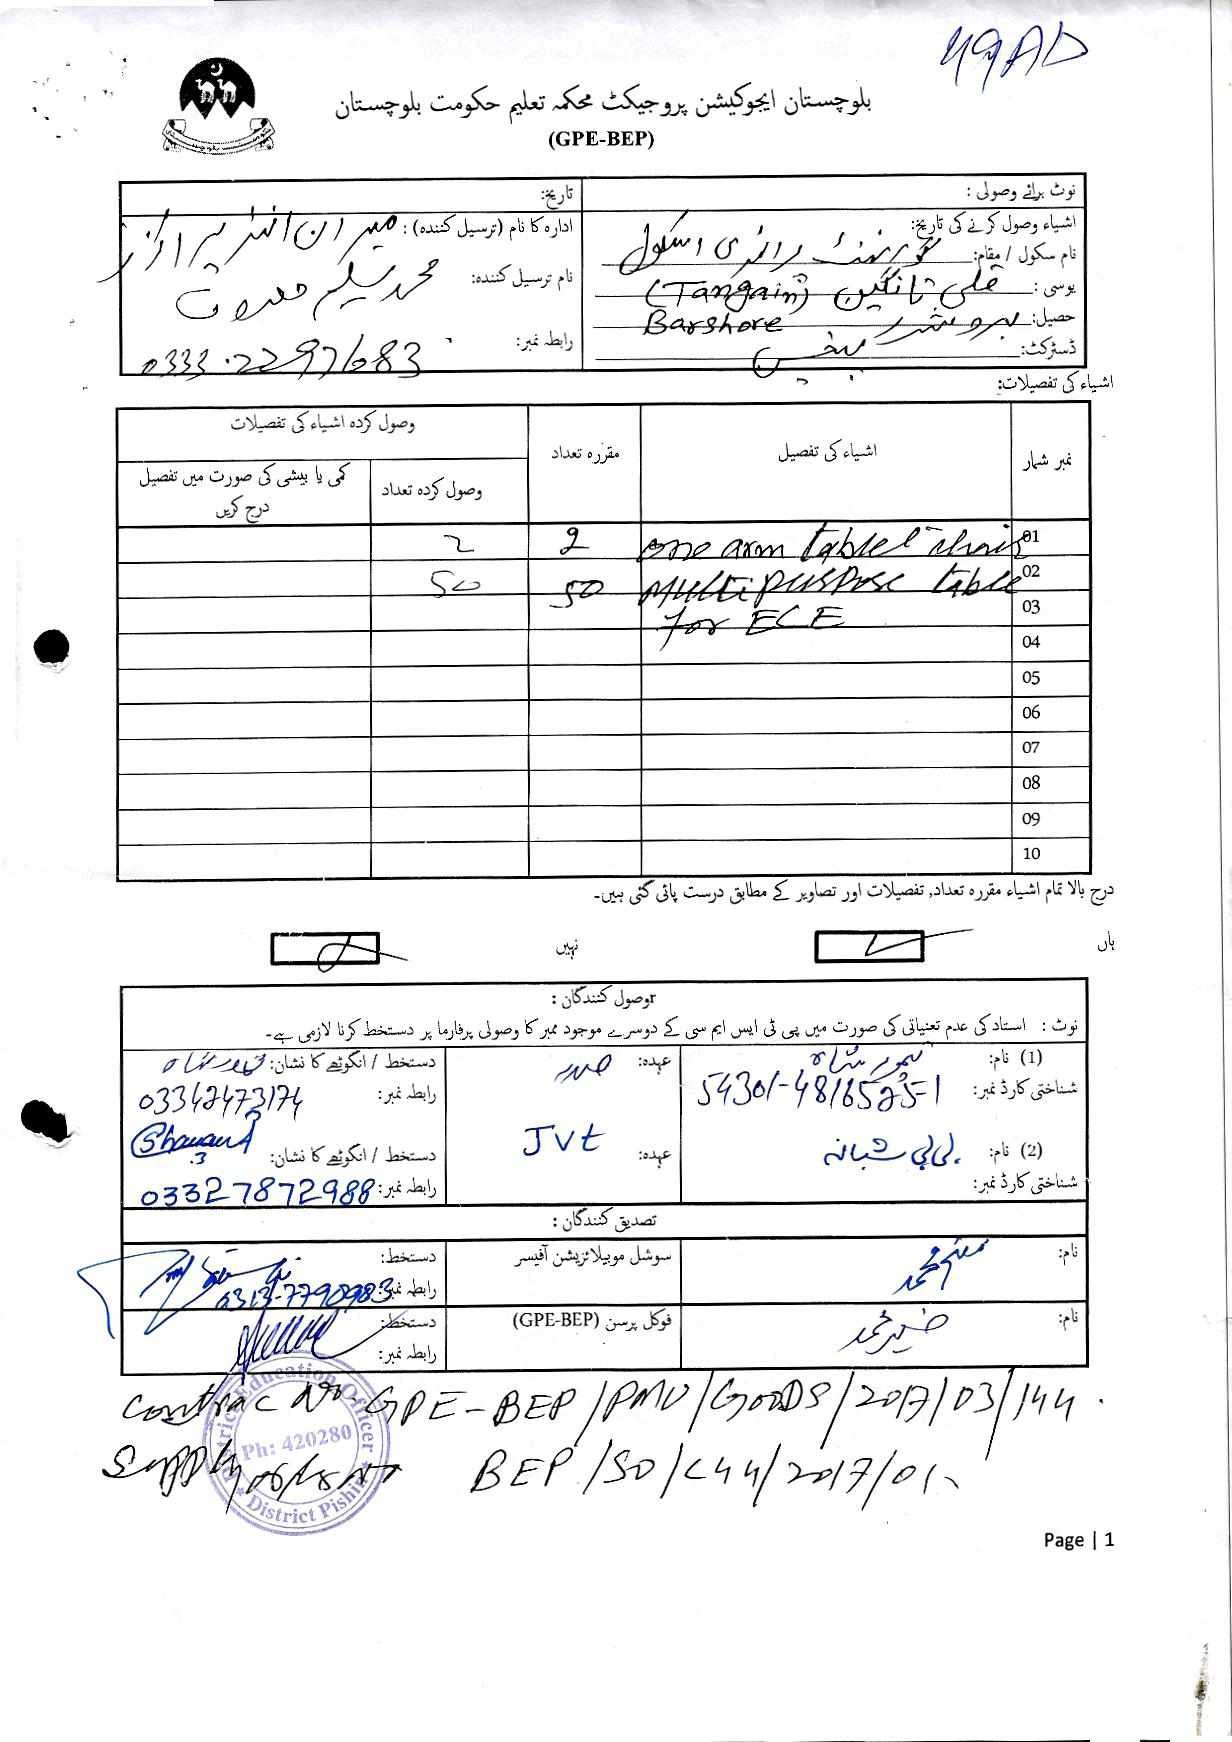 49AD
بلوچستان ایجوکیشن پروجیکٹ محکمہ تعلیم حکومت بلوچستان
(GPE-BEP)
نوٹ برائے وصولی :
اشیاء وصول کرنے کی تاریخ:
نام سکول / مقام: گورنمنٹ پرائمری اسکول
یوسی : کلی تانگین (Tangain)
حصیل: برشور Barshore
ڈسٹرکٹ: پشین
تاریخ:
ادارہ کا نام (ترسیل کنندہ) : میران انٹرپرائز
نام ترسیل کنندہ: محمد سلیم
رابطہ نمبر: 0333.2297683
اشیاء کی تفصیلات:
نمبر شمار اشیاء کی تفصیل مقررہ تعداد وصول کردہ اشیاء کی تفصیلات
وصول کردہ تعداد کمی یا بیشی کی صورت میں تفصیل درج کریں
01 one arm tablet chair 2 2
02 Multipurpose table 50 50
03 for ECE
04
05
06
07
08
09
10
درج بالا تمام اشیاء مقررہ تعداد, تفصیلات اور تصاویر کے مطابق درست پائی گئی ہیں۔
ہاں نہیں
وصول کنندگان :
نوٹ : استاد کی عدم تعنیاتی کی صورت میں پی ٹی ایس ایم سی کے دوسرے موجود ممبر کا وصولی پرفارما پر دستخط کرنا لازمی ہے۔
(1) نام: عہدہ: صدر دستخط / انگوٹھے کا نشان:
شناختی کارڈ نمبر: 54301-4816525-1 رابطہ نمبر: 03342473174
(2) نام: بی بی شبانہ عہدہ: JVt دستخط / انگوٹھے کا نشان:
شناختی کارڈ نمبر: رابطہ نمبر: 03327872988
تصدیق کنندگان :
نام: سوشل موبیلائزیشن آفیسر دستخط:
رابطہ نمبر: 0313-7790983
نام: فوکل پرسن (GPE-BEP) دستخط:
رابطہ نمبر:
Contrac No. GPE-BEP/PMU/GOODS/2017/03/144.
Supply BEP/SO/C44/2017/01
District Education Officer
Ph: 420280
District Pishin
Page | 1